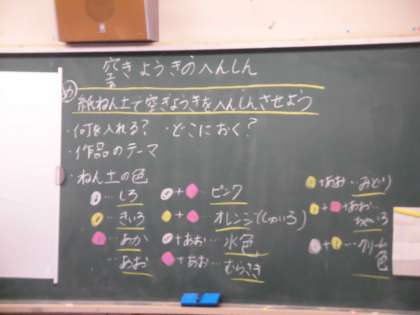 空きようきのへんしん
め 紙ねん土で空きようきをへんしんさせよう
・何を入れる？ ・どこにおく？
・作品のテーマ
・ねん土の色
…しろ
…きいろ
…あか
…あお
+ … ピンク
+ … オレンジ
+あお… 水色
+あお… むらさき
+あお…みどり
+ +あお…
ちゃいろ
+ …クリーム色